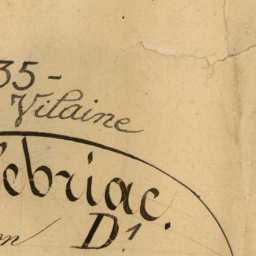 35-
Vilaine
ebriac.
on D.¹